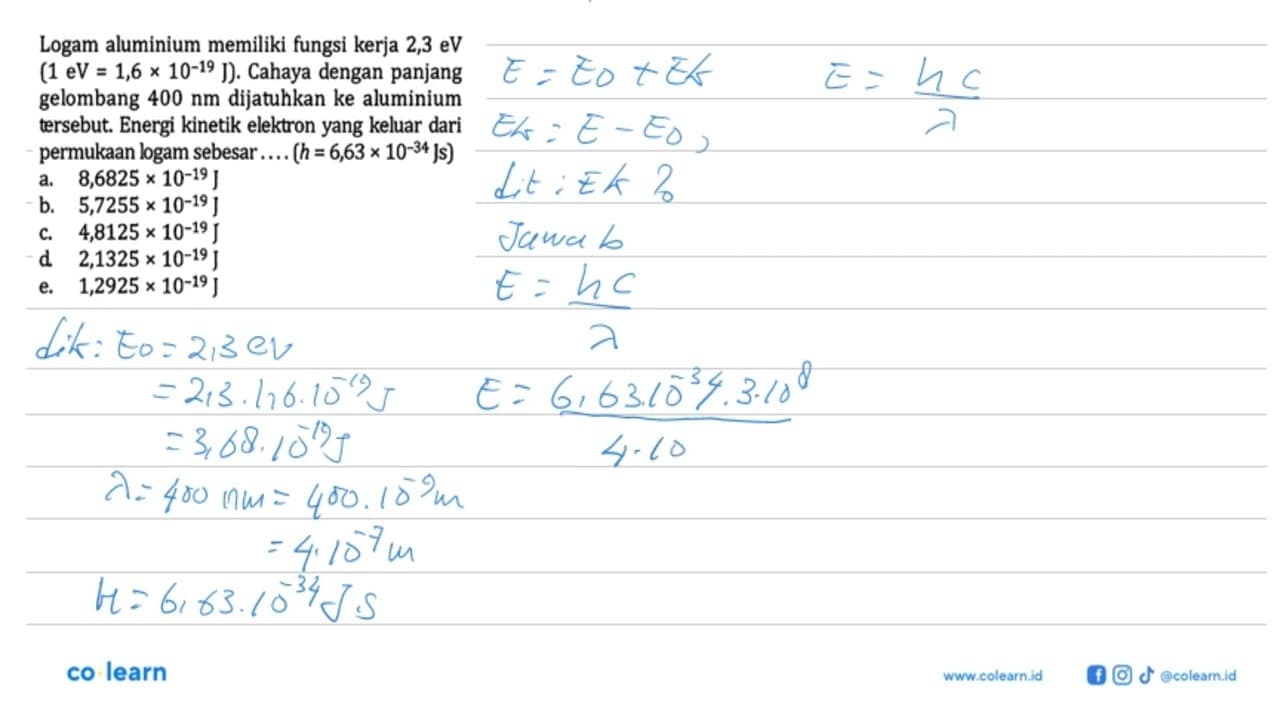 Logam aluminium memiliki fungsi kerja 2,3 eV
(1 eV = 1,6 × 10⁻¹⁹ J). Cahaya dengan panjang
gelombang 400 nm dijatuhkan ke aluminium
tersebut. Energi kinetik elektron yang keluar dari
permukaan logam sebesar .... (h = 6,63 × 10⁻³⁴ Js)
a. 8,6825 × 10⁻¹⁹ J
b. 5,7255 × 10⁻¹⁹ J
c. 4,8125 × 10⁻¹⁹ J
d 2,1325 × 10⁻¹⁹ J
e. 1,2925 × 10⁻¹⁹ J
dik: E0 = 2,3 eV
= 2,3 . 1,6 . 10⁻¹⁹ J
= 3,68 . 10⁻¹⁹ J
λ = 400 nm = 400 . 10⁻⁹ m
= 4 . 10⁻⁷ m
h = 6,63 . 10⁻³⁴ J.s
E = E0 + Ek
Ek = E - E0,
dit : Ek ?
Jawab
E = hc
λ
E = 6,63.10⁻³⁴ . 3.10⁸
4.10
E = hc
λ
co learn
www.colearn.id
@colearn.id